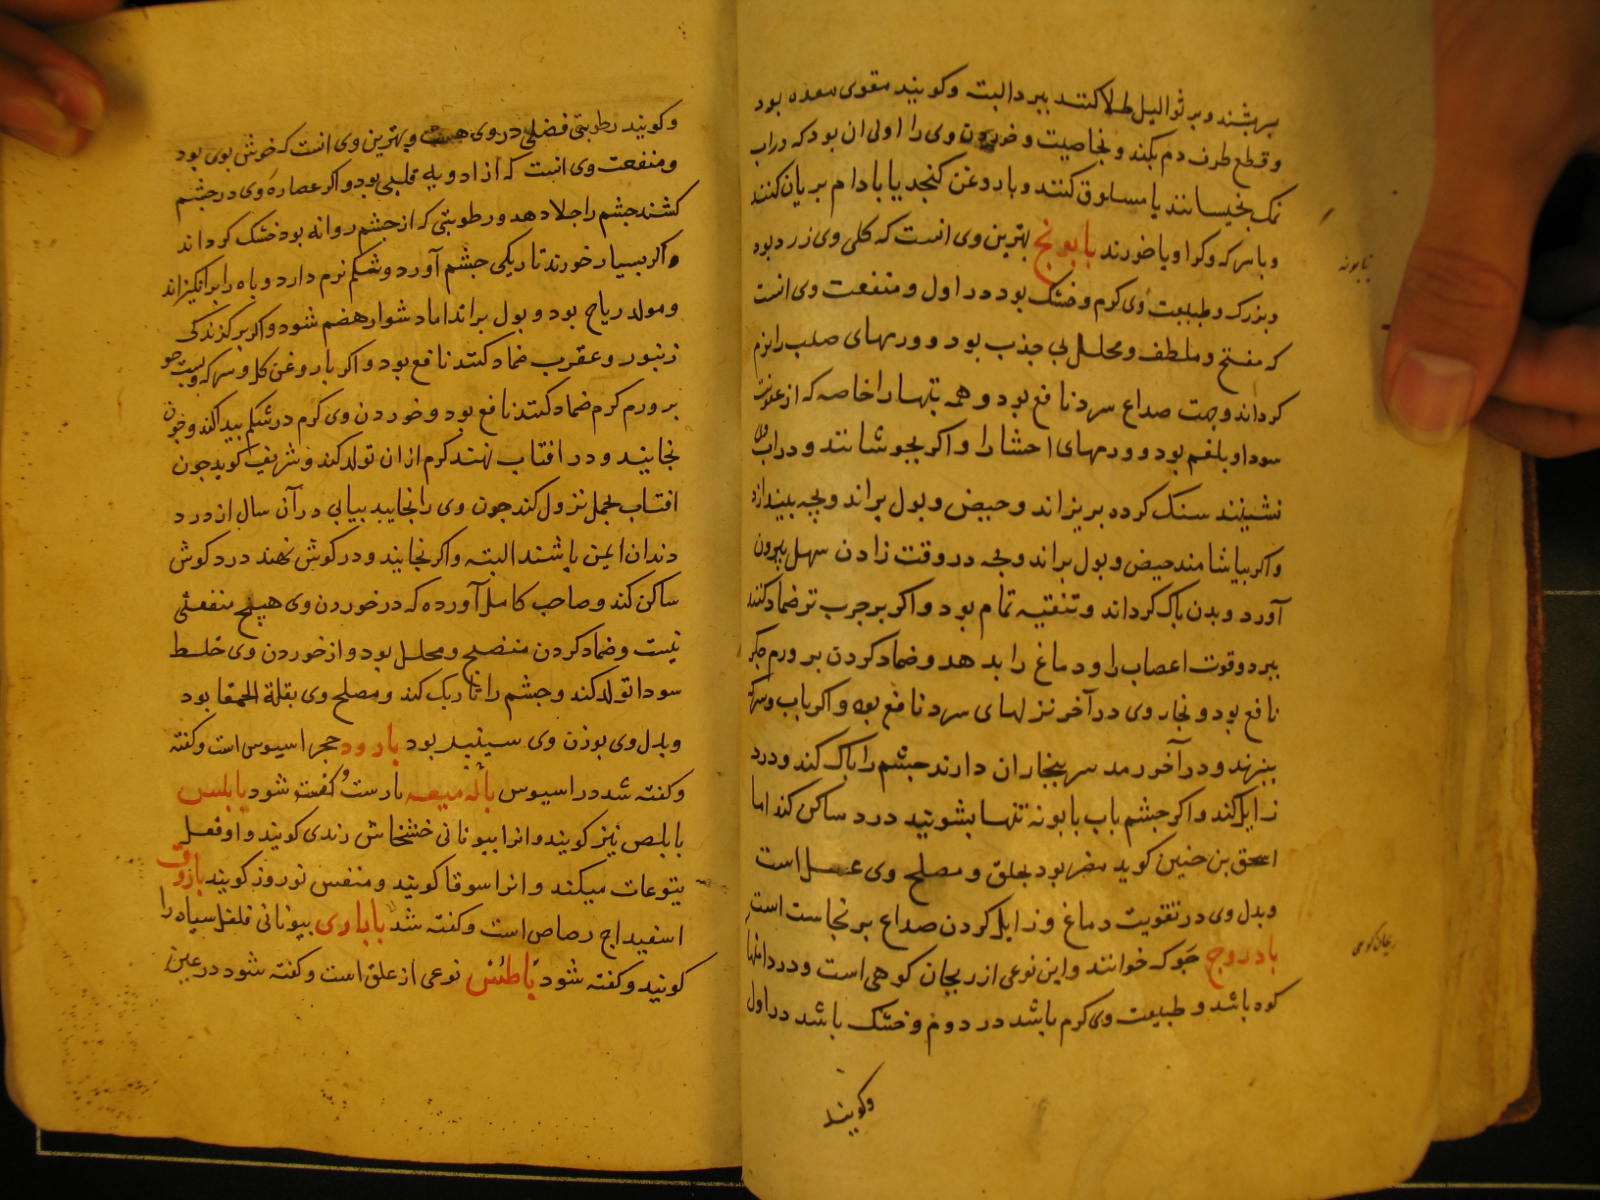 بسرشند و بر ثوالیل طلا کنند ببرد البته و کویند مقوی معده بود
و قطع طرف دم بکند و بخاصیت و خوردن وی را اولی ان بود که در اب
نمک بخیسانند یا مسلوق کنند و با روغن کنجد یا بادام بریان کنند
و با سرکه و کراویا خورند بابونج بهترین وی انست که کلی وی زرد بود
و بزرک و طبیعت وی کرم و خشک بود در اول و منفعت وی انست
که مفتح و ملطف و محلل بی جذب بود و ورمهای صلب را نرم
کرداند و جهت صداع سرد نافع بود و همه تبها را خاصه که از عفونت
سودا و بلغم بود و ورمهای احشا را و اکر بجوشانند و در اب وی
نشینند سنک کرده بریزاند و حیض و بول براند و بچه بیندازد
و اکر بیاشامند حیض و بول براند و بچه در وقت زادن سهل بیرون
آورد و بدن باک کرداند و تنقیه تمام بود و اکر بر جرب تر ضماد کنند
ببرد و قوت اعصاب را و دماغ را بدهد و ضماد کردن بر ورم جکر
نافع بود و بخار وی در آخر نزلهای سرد نافع بود و اکر باب و سرکه
ببزند و در آخر رمد سر ببخار ان دارند جشم را باک کند و درد
زایل کند و اکر جشم باب بابونه تنها بشویید درد ساکن کند اما
اسحق بن حنین کوید مضر بود بحلق و مصلح وی عسل است
و بدل وی در تقویت دماغ و زایل کردن صداع برنجاست است
بادروج حوک خوانند و این نوعی از ریحان کوهی است و در دامنها
کوه باشد و طبیعت وی کرم باشد در دوم و خشک باشد در اول
و کویند
بابونه
ریحان کوهی
و کویند رطوبتی فضلی در وی هست و بهترین وی انست که خوش بوی بود
و منفعت وی انست که از ادویه قلبی بود و اکر عصاره وی در جشم
کشند جشم را جلا دهد و رطوبتی که از جشم روانه بود خشک کرداند
و اکر بسیار خورند تاریکی جشم آورد و شکم نرم دارد و باه را برانکیزاند
و مولد ریاح بود و بول براند اما دشوار هضم شود و اکر بر کزندکی
زنبور و عقرب ضماد کنند نافع بود و اکر با روغن کل و سرکه و بست جو
بر ورم کرم ضماد کنند نافع بود و خوردن وی کرم در شکم بیدا کند و جون
بخایند و در افتاب نهند کرم از ان تولد کند و شریف کوید جون
افتاب بحمل نزول کند جون وی را بخایید بیابی در آن سال از درد
دندان ایمن باشند البته و اکر بخایند و در کوش نهند درد کوش
ساکن کند و صاحب کامل آورده که در خوردن وی هیچ منفعتی
نیست و ضماد کردن منضج و محلل بود و از خوردن وی خلط
سودا تولد کند و جشم را تاریک کند و مصلح وی بقلة الحمقا بود
و بدل وی بوزن وی سیسنبر بود بارود حجر اسیوس است و کفته
و کفته شد در اسیوس بانه میعه بارست کفته شود بابلس
بابلص نیز کویند و انرا بیونانی خشخاش زبدی کویند و او فعل
یتوعات میکند و انرا سوقا کویند و منفس نوروز کویند بازوق
اسفیداج رصاص است و کفته شد باباری بیونانی فلفل سیاه را
کویند و کفته شود باطس نوعی از علق است و کفته شود در عین